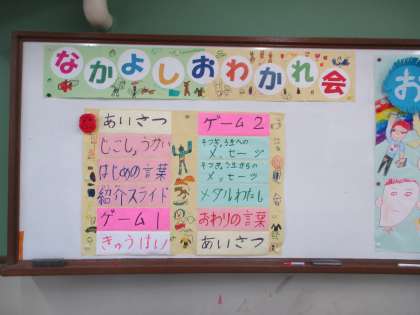 なかよしおわかれ会
あいさつ
はじめの言葉
紹介スライド
ゲーム1
きゅうけい
ゲーム2
そつぎょう生への
メッセージ
そつぎょう生からの
メッセージ
メダルわたし
おわりの言葉
あいさつ
お